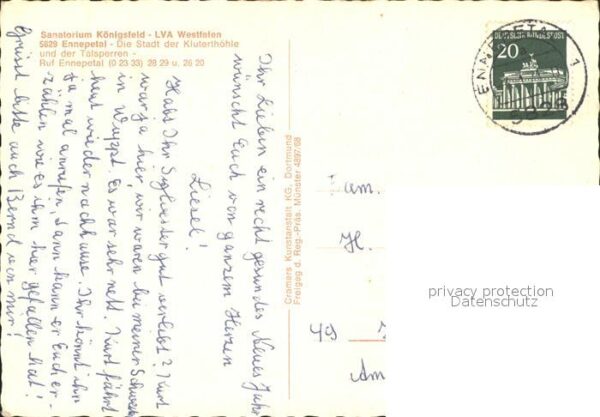 Sanatorium Königsfeld - LVA Westfalen
5829 Ennepetal - Die Stadt der Kluterthöhle
und der Talsperren -
Ruf Ennepetal (0 23 33) 28 29 u. 26 20
Ihr Lieben ein recht gesundes Neues Jahr
wünscht Euch von ganzem Herzen
Liesel!
Habt Ihr Sylvester gut verlebt? Kurt
war ja hier, wir waren bei meiner Schwester
in Wuppt. Es war sehr nett. Kurt fährt
heut wieder nach hause. Ihr könnt ihn
ja mal anrufen, dann kann er Euch er-
zählen wie es ihm hier gefallen hat!
Grüßel bitte auch Bernd von mir!
Cramers Kunstanstalt KG, Dortmund
Freigeg d. Reg.-Präs. Münster 4897/68
DEUTSCHE BUNDESPOST
20
ENNEPETAL 1
5828
Fam.
H.
49
Am
privacy protection
Datenschutz